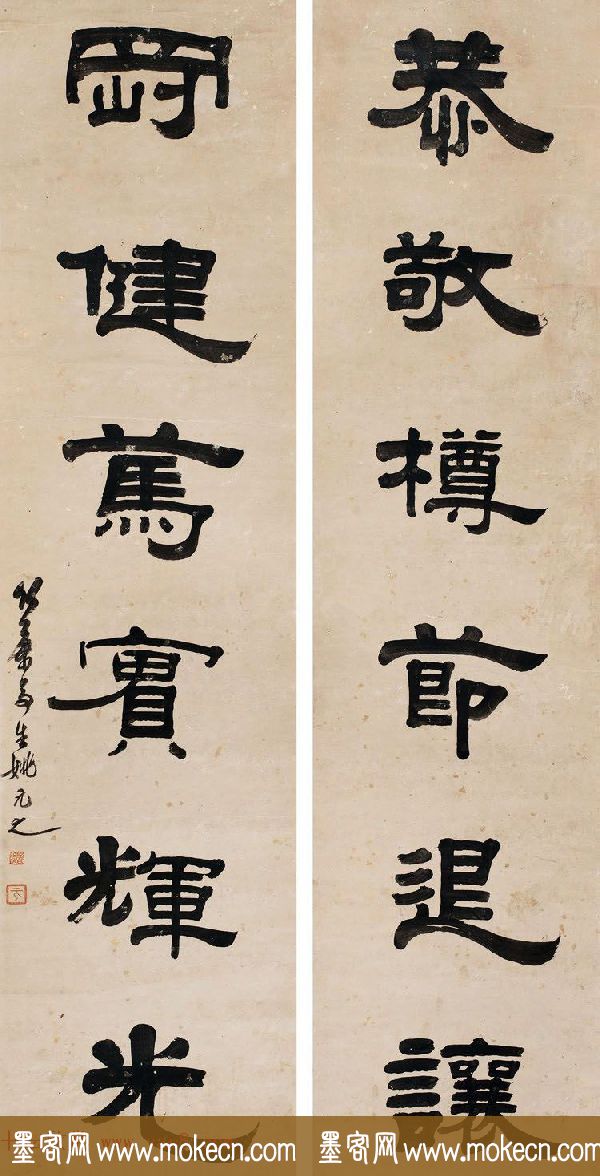 恭敬樽節退讓
剛健篤實輝光
竹葉亭生姚元之
墨客网 www.mokecn.com 墨客网 www.mokecn.com